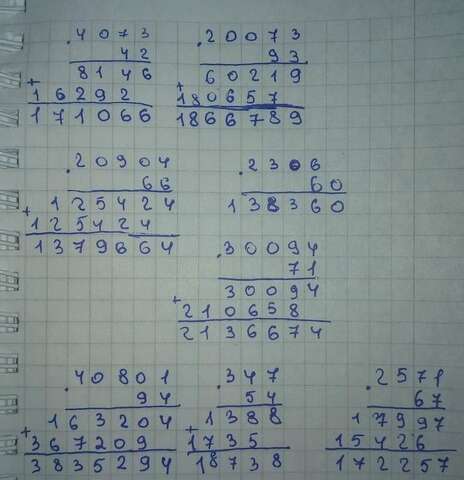 . 4073
42
8146
+ 16292
171066
. 20073
93
60219
+ 180657
1866789
. 20904
66
125424
+ 125424
1379664
. 2306
60
138360
. 30094
71
30094
+ 210658
2136674
. 40801
94
163204
+ 367209
3835294
. 347
54
1388
+ 1735
18738
. 2571
67
17997
15426
172257